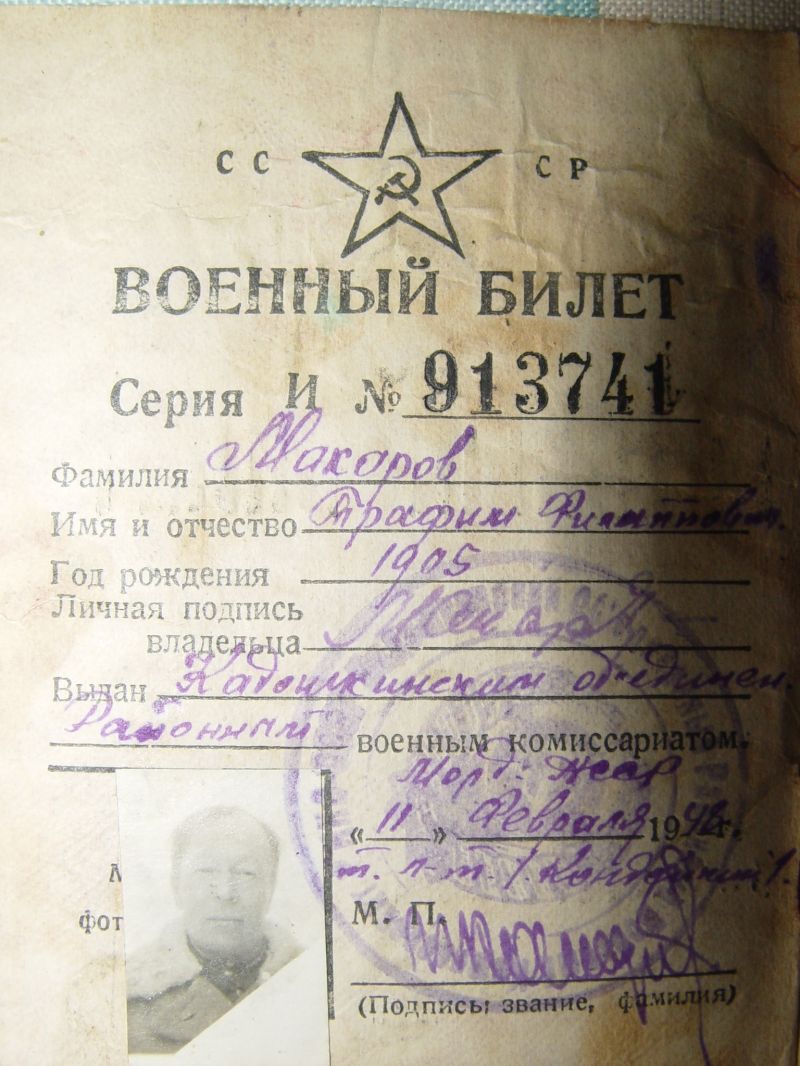 СС СР
ВОЕННЫЙ БИЛЕТ
Серия И № 913741
Фамилия Макаров
Имя и отчество Трафим Филиппович
Год рождения 1905
Личная подпись
владельца Макаров
Выдан Кадошкинским объединен.
Районный военным комиссариатом.
Морд: АССР
«11» Февраля 1948 г.
М. П.
(Подпись, звание, фамилия)